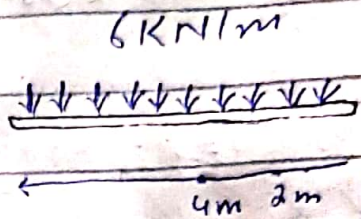 6KN/m
4m 2m